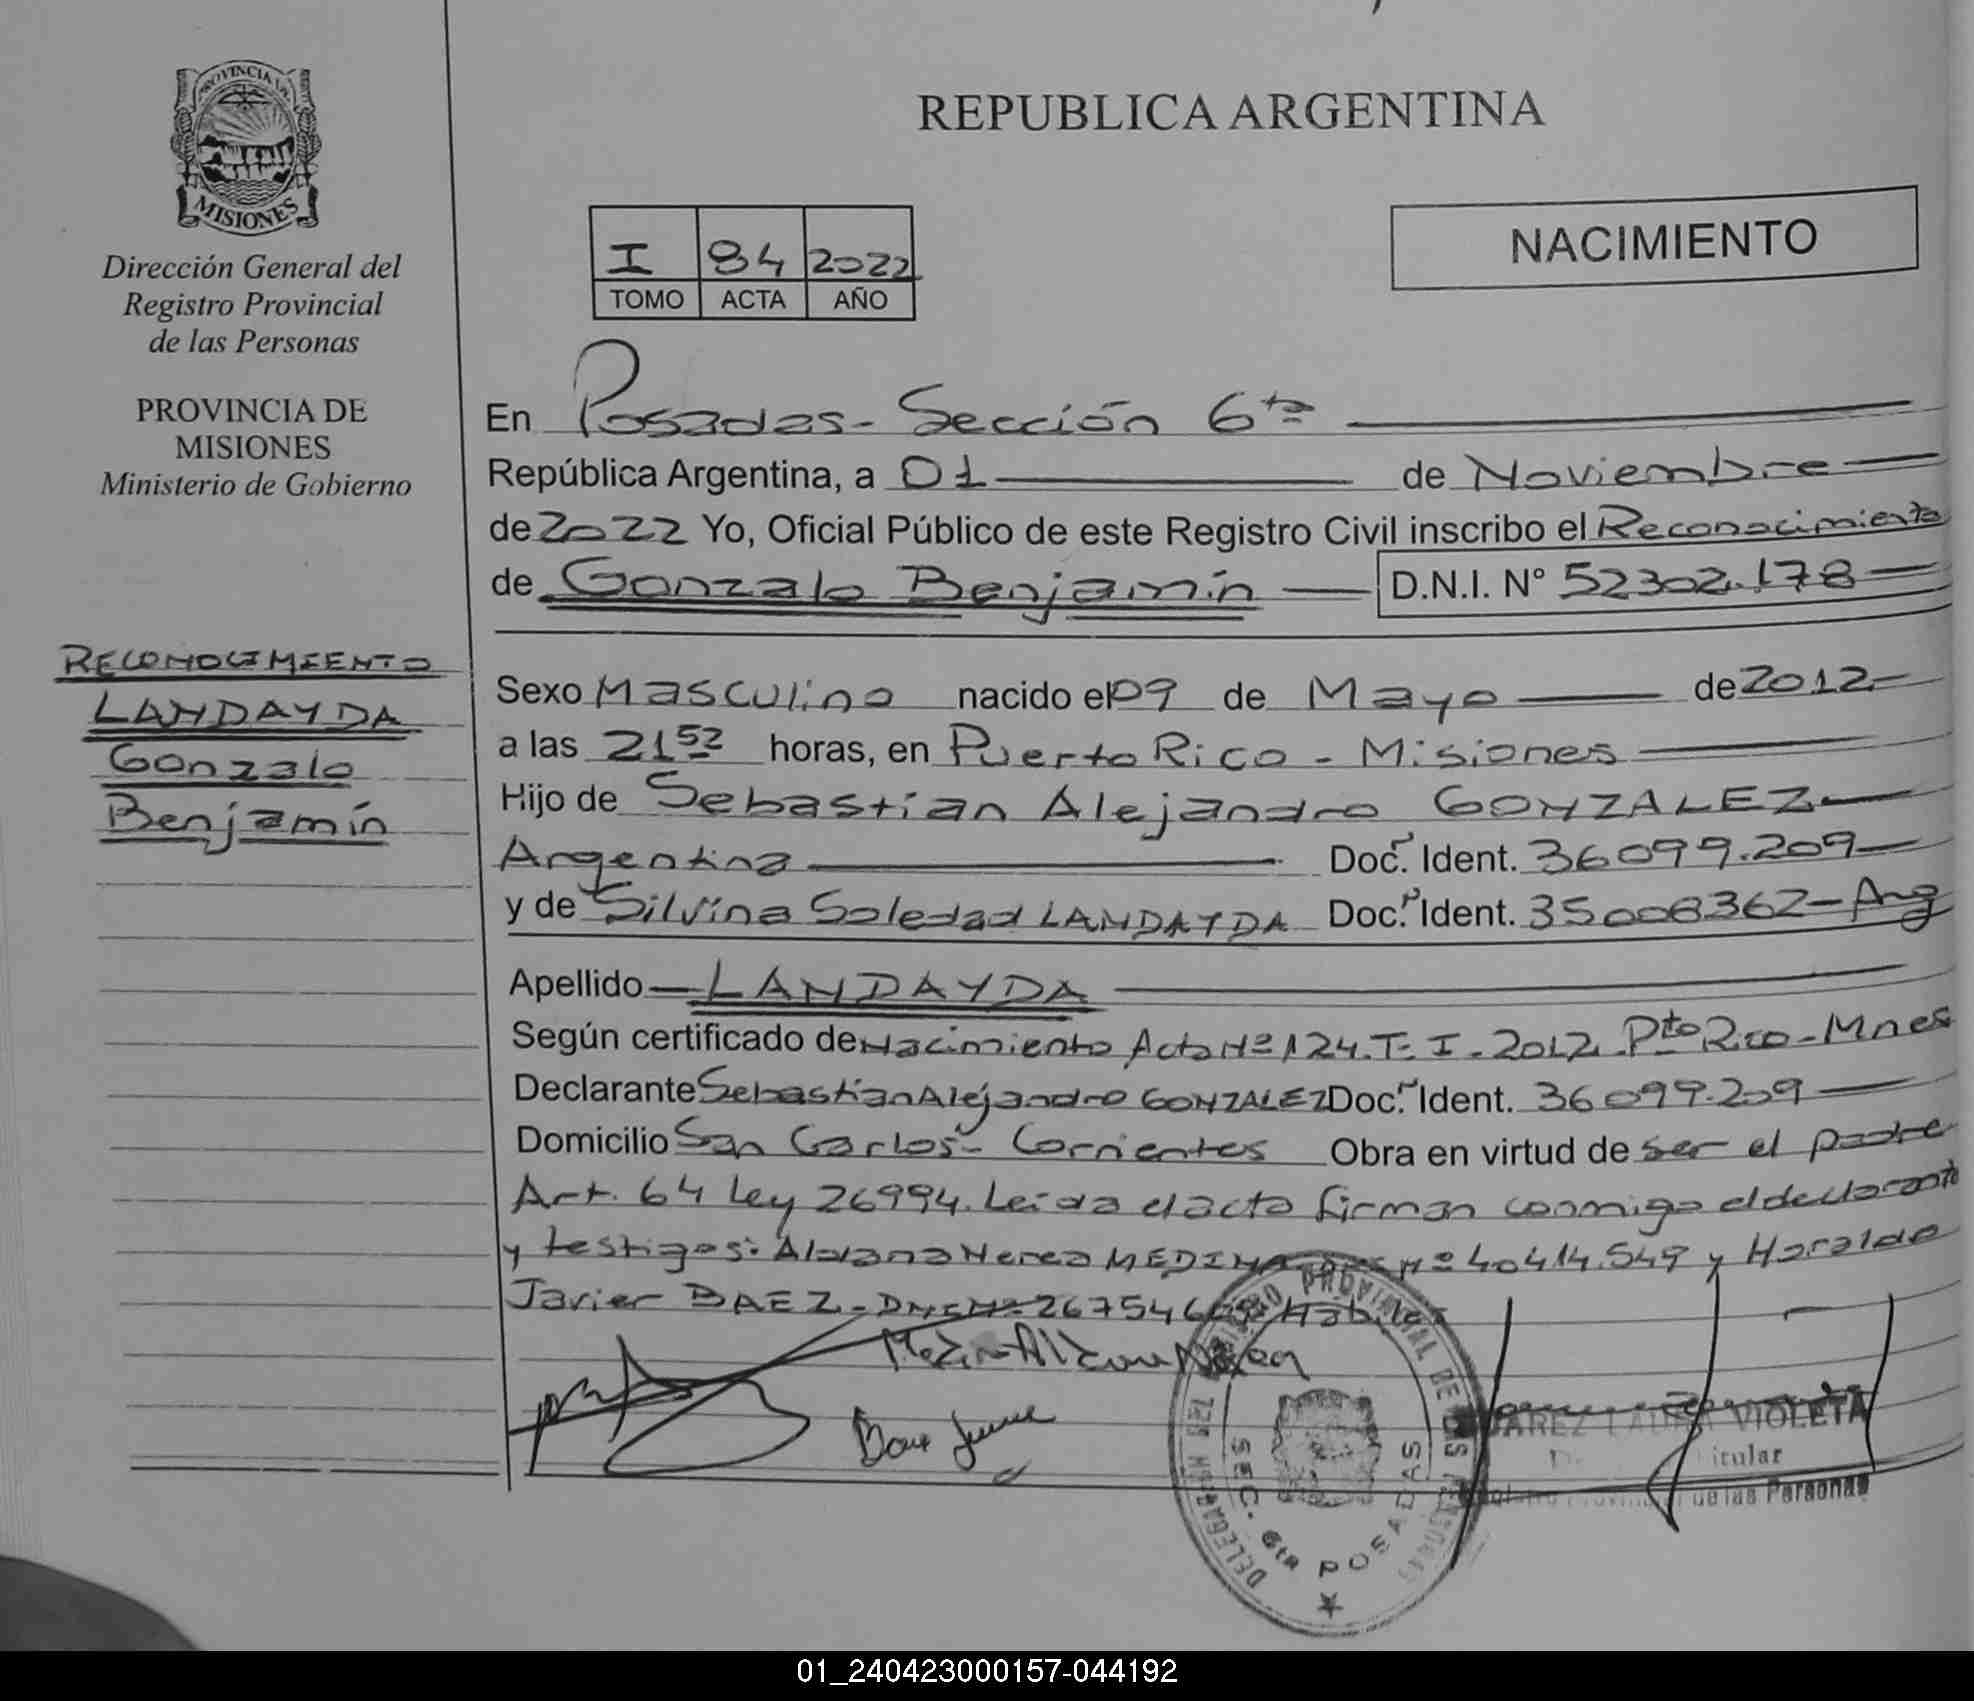 PROVINCIA DE
MISIONES
Dirección General del
Registro Provincial
de las Personas
PROVINCIA DE
MISIONES
Ministerio de Gobierno
RECONOCIMIENTO
LANDAYDA
Gonzalo
Benjamín
REPUBLICA ARGENTINA
I 84 2022
TOMO ACTA AÑO
NACIMIENTO
En Posadas - Sección 6ta
República Argentina, a 01 de Noviembre
de 2022 Yo, Oficial Público de este Registro Civil inscribo el Reconocimiento
de Gonzalo Benjamín D.N.I. N° 52302.178
Sexo Masculino nacido el 09 de Mayo de 2012
a las 21 52 horas, en Puerto Rico - Misiones
Hijo de Sebastian Alejandro GONZALEZ
Argentina Doc. Ident. 36099.209
y de Silvina Soledad LANDAYDA Doc. Ident. 35008362 - Arg
Apellido LANDAYDA
Según certificado de Nacimiento Acta Nº 124. T- I - 2012 Pto Rico - Mnes
Declarante Sebastian Alejandro GONZALEZ Doc. Ident. 36099.209
Domicilio San Carlos - Corrientes Obra en virtud de ser el padre
Art. 64 Ley 26994. Leida el acta firman conmigo el declarante
y testigos: Aldana Nerea MEDINA Nº 40414.549 y Haraldo
Javier BAEZ - DNI Nº Habiles
DELEGACION DEL REGISTRO PROVINCIAL DE LAS PERSONAS
SEC. 6ta POSADAS
LAURA VIOLETA
Titular
Registro Provincial de las Personas
01_240423000157-044192